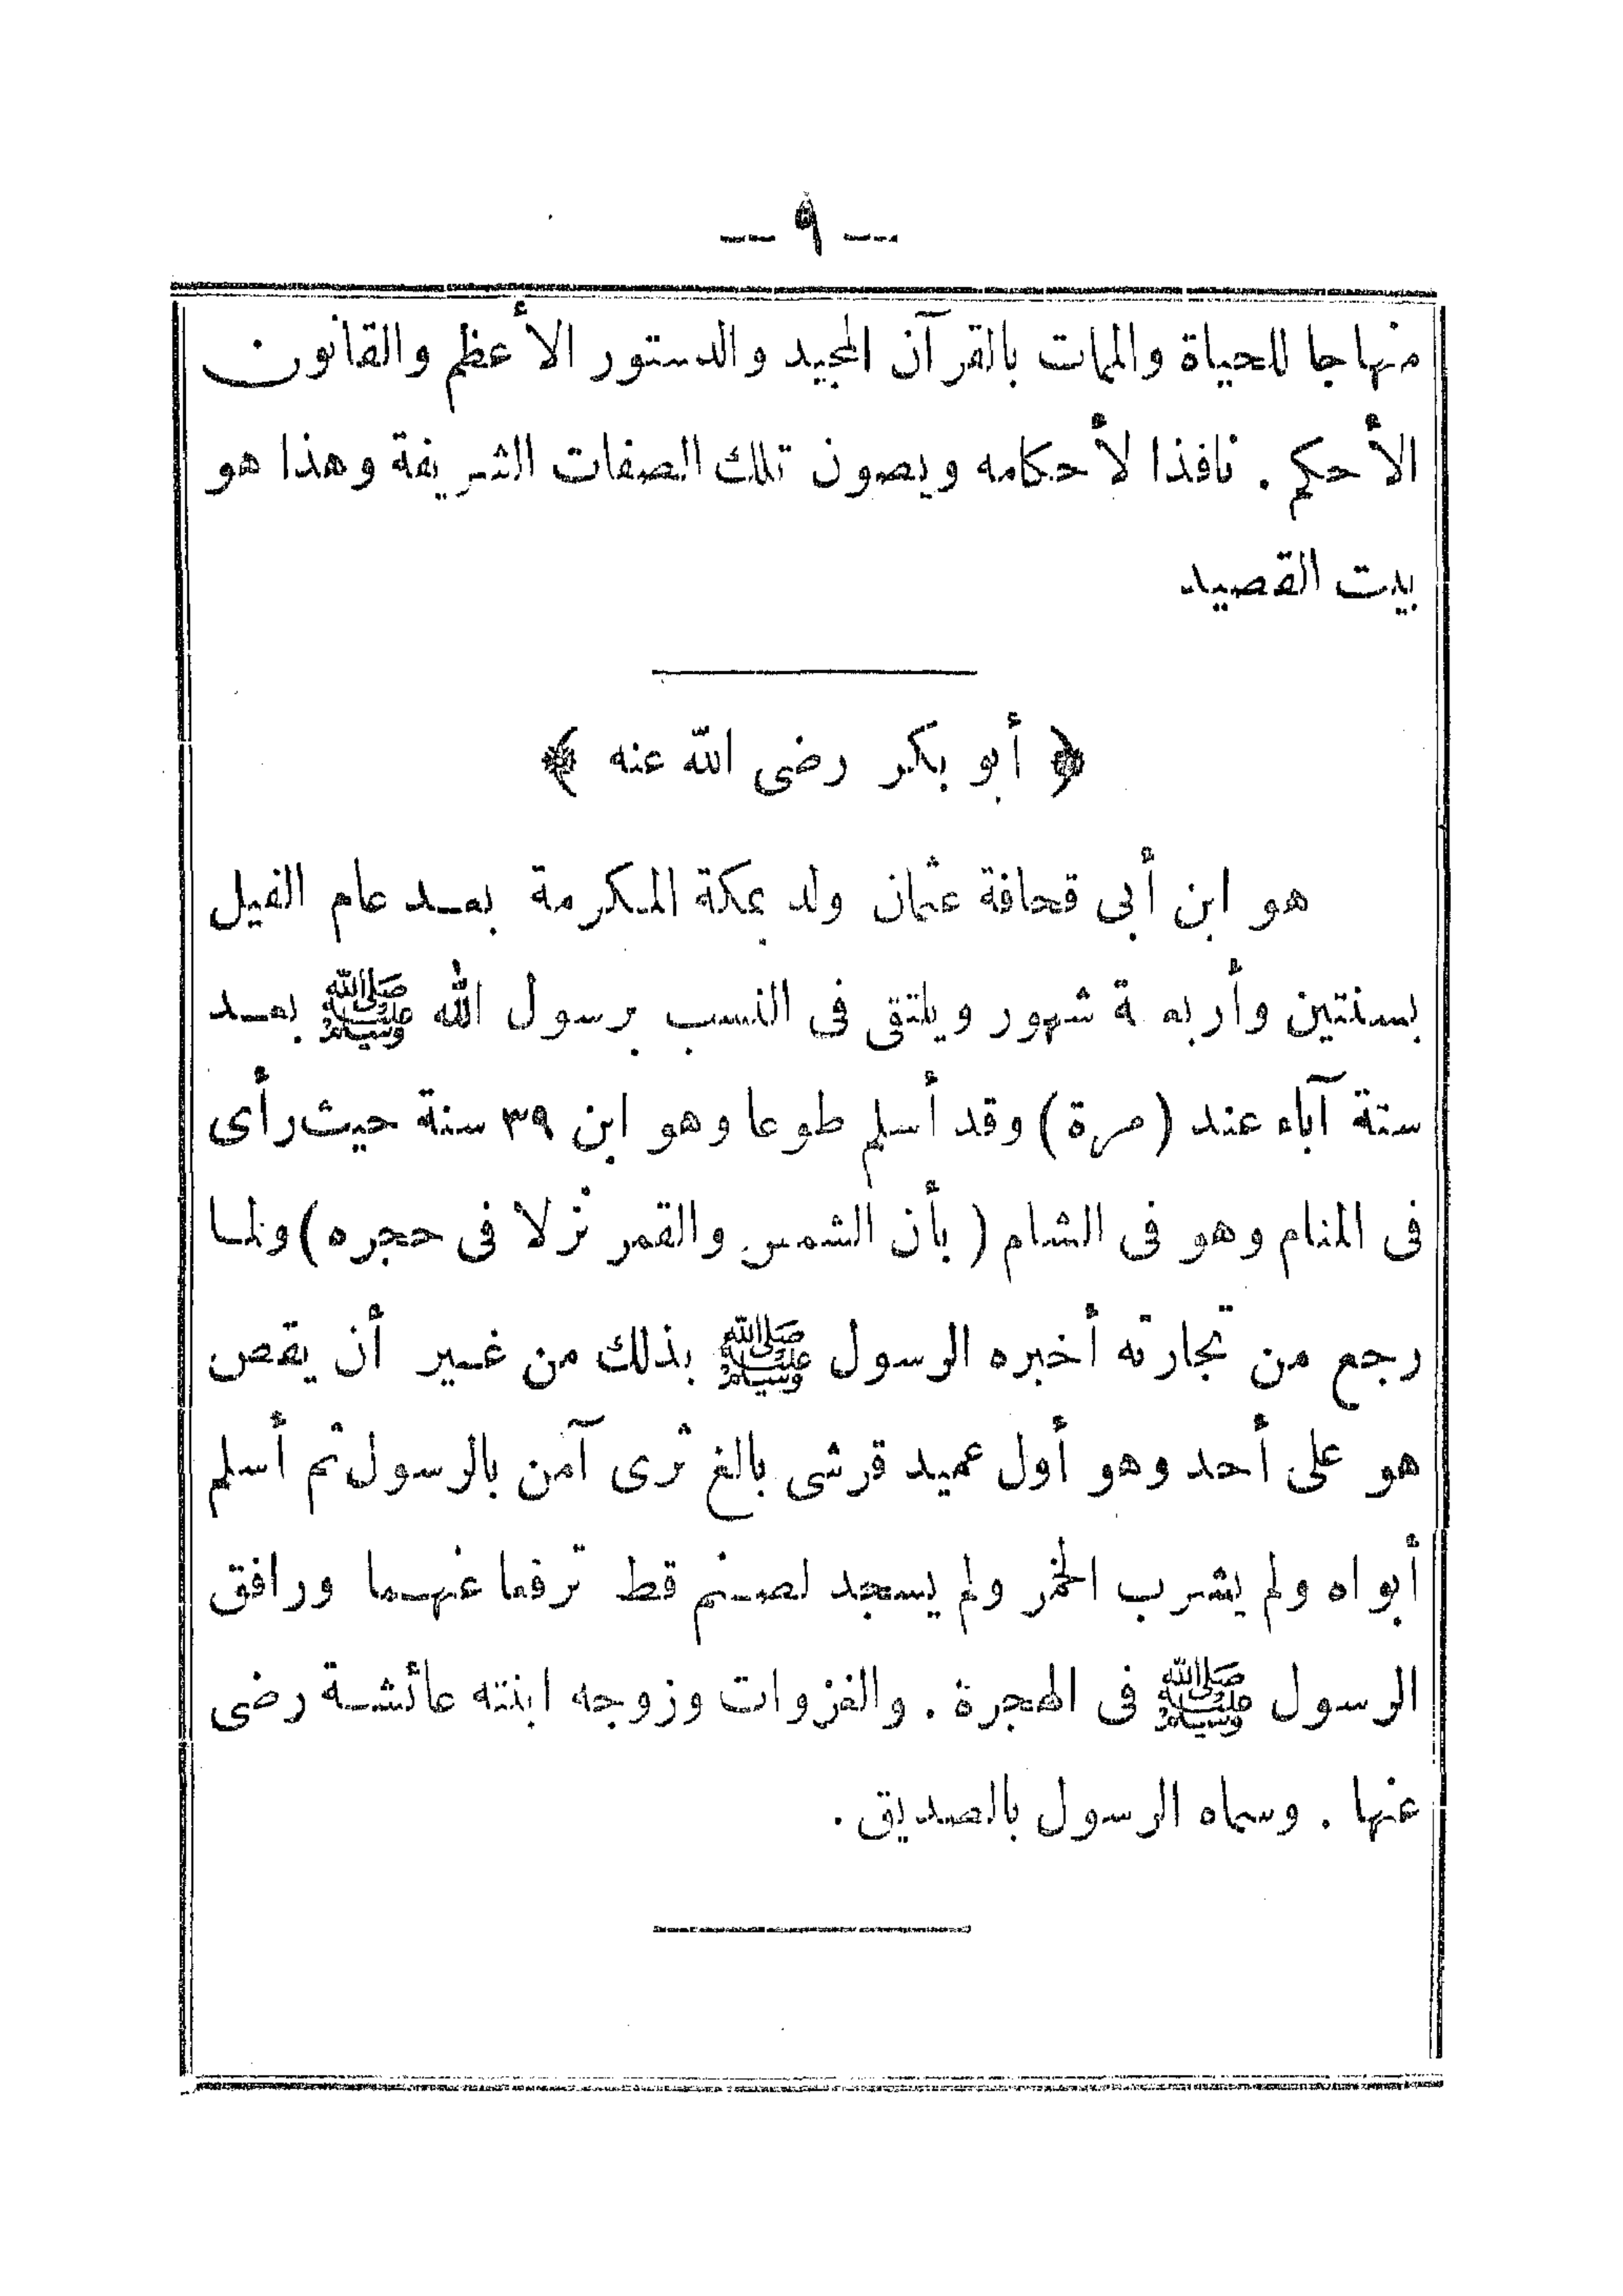 — ٩ —
منهاجا للحياة والممات بالقرآن المجيد والدستور الأعظم والقانون
الأحكم . نافذا لأحكامه ويصون تلك الصفات الشريفة وهذا هو
بيت القصيد
﴿ أبو بكر رضى الله عنه ﴾
هو ابن أبى قحافة عثمان ولد بمكة المكرمة بعد عام الفيل
بسنتين وأربعة شهور ويلتقى فى النسب برسول الله ﷺ بعد
ستة آباء عند (مرة) وقد أسلم طوعا وهو ابن ٣٩ سنة حيث رأى
فى المنام وهو فى الشام ( بأن الشمس والقمر نزلا فى حجره) ولما
رجع من تجارته أخبره الرسول ﷺ بذلك من غير أن يقص
هو على أحد وهو أول عميد قرشى بالغ ثرى آمن بالرسول ثم أسلم
أبواه ولم يشرب الخمر ولم يسجد لصنم قط ترفعا عنهما ورافق
الرسول ﷺ فى الهجرة . والغزوات وزوجه ابنته عائشة رضى
عنها . وسماه الرسول بالصديق .